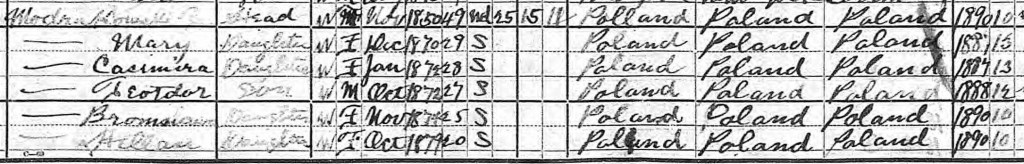 Head W Nov 1850 49 Wd 25 15 11 Poland Poland Poland 1890 10
— Mary Daughter W F Dec 1870 29 S Poland Poland Poland 1887 13
— Casimira Daughter W F Jan 1872 28 S Poland Poland Poland 1887 13
— Teotdor Son W M Oct 1872 27 S Poland Poland Poland 1888 12
— Daughter W F Nov 1874 25 S Poland Poland Poland 1890 10
— Daughter W F Oct 1879 20 S Poland Poland Poland 1890 10